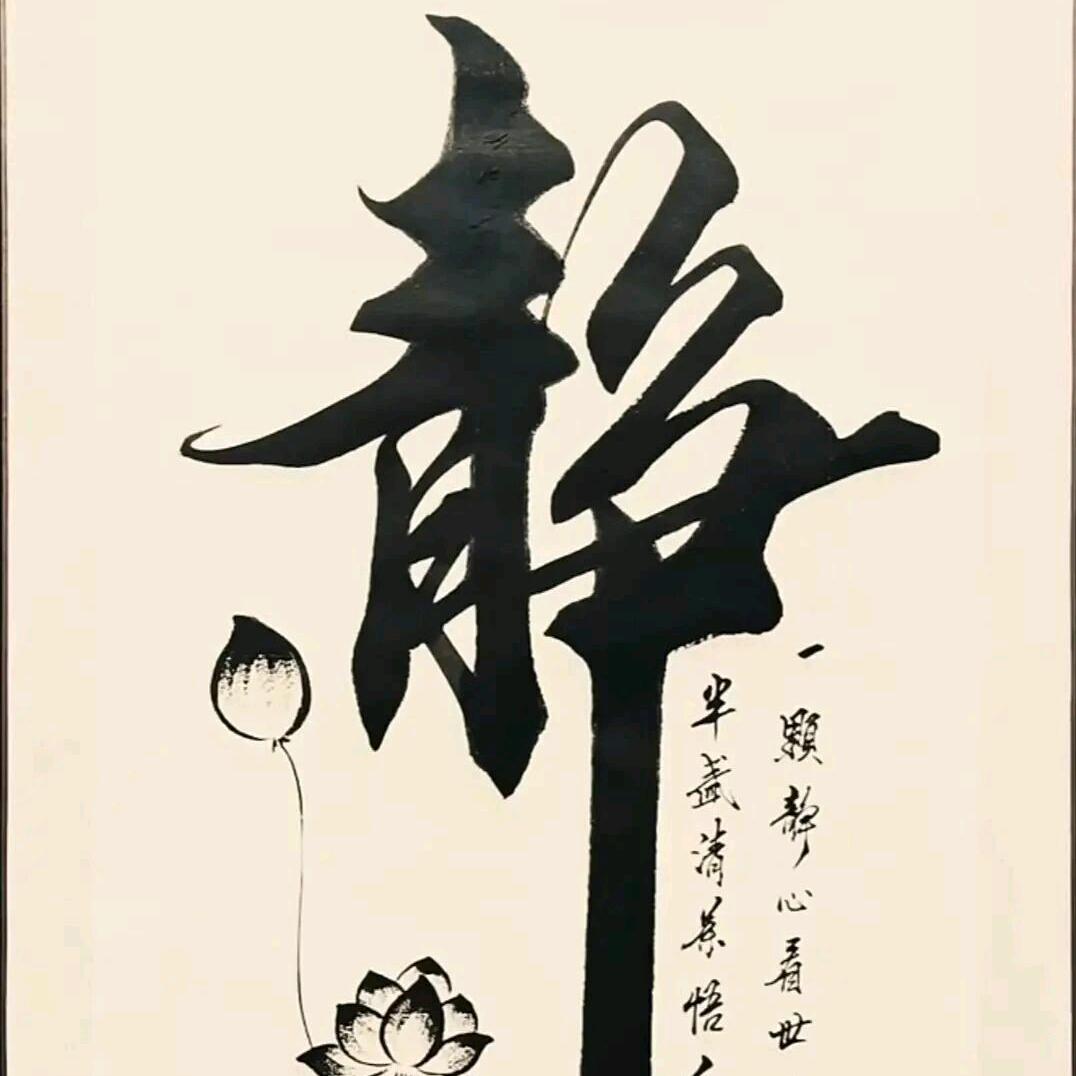 靜
一顆静心看世
半盞清茶悟